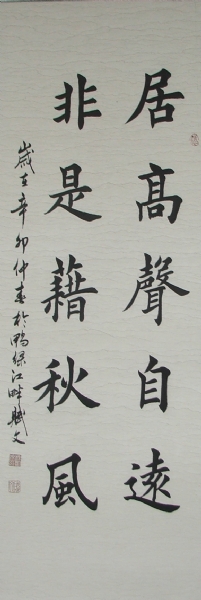 居高聲自遠
非是藉秋風
歲在辛卯仲春於鴨綠江畔賦文